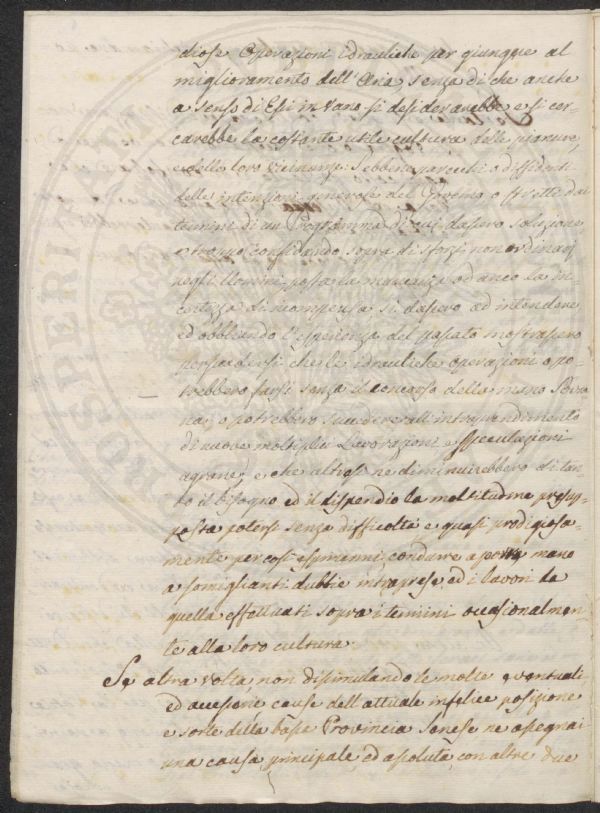 diose Operazioni idrauliche per giungere al
miglioramento dell'Aria, senza di che anche
a senso di Essi in vano si desiderarebbe e si cer-
carebbe la costante utile cultura delle pianure,
e delle loro vicinanze: Sebbene parecchi o diffidenti
delle intenzioni generose del Governo o stretti dai
termini di un Programma di cui dassero soluzione
o troppo confidando sopra di sforzi non ordinarj
negli Uomini, posta la mancanza od anco la in-
certezza di ricompensa si dassero ad intendere
ed obbliando l'esperienza del passato mostrassero
persuadersi che le idrauliche operazioni o po-
trebbero farsi senza il concorso della mano Sovra-
na, o potrebbero succedere all'intraprendimento
di nuove moltiplici Lavorazioni e speculazioni
agrarie, e che altresì ne diminuirebbero di tan-
to il bisogno ed il dispendio la moltitudine presup-
posta potersi senza difficoltà e quasi prodigiosa-
mente per così esprimermi, condurre a porre mano
a somiglianti dubbie intraprese, ed i lavori da
quella effettuati sopra i terreni occasionalmen-
te alla loro cultura.
Se altra volta, non dissimulando le molte eventuali
ed accessorie cause dell'attuale infelice posizione
e sorte della bassa Provincia Senese ne assegnai
una causa principale, ed assoluta, con altre due